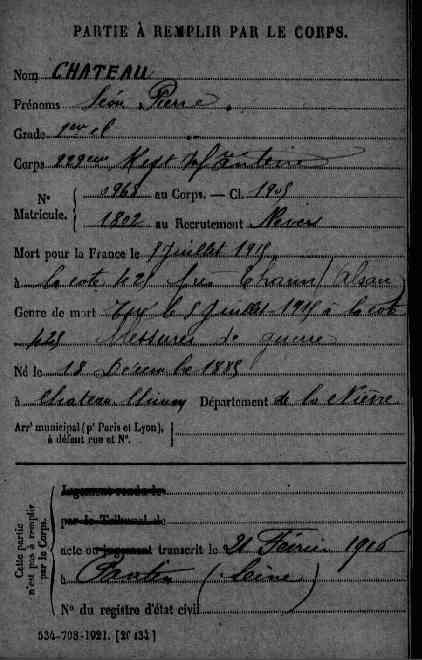 PARTIE À REMPLIR PAR LE CORPS.
Nom CHATEAU
Prénoms Léon Pierre
Grade 1ere cl
Corps 229eme Regt d'Infanterie
N° Matricule. { 0968 au Corps. — Cl. 1905
1802 au Recrutement Nevers
Mort pour la France le Juillet 1915
à la cote 425 près Thann (Alsace)
Genre de mort le 5 Juillet 1915 à la cote
425 Blessures de guerre
Né le 18 Décembre 1885
à Chateau Chinon Département de la Nièvre
Arrt municipal (pr Paris et Lyon),
à défaut rue et N°.
Cette partie n'est pas à remplir par le Corps.
jugement rendu le
par le Tribunal de
acte ou jugement transcrit le 21 Février 1916
à Pantin (Seine)
N° du registre d'état civil
534-708-1921. [26434]